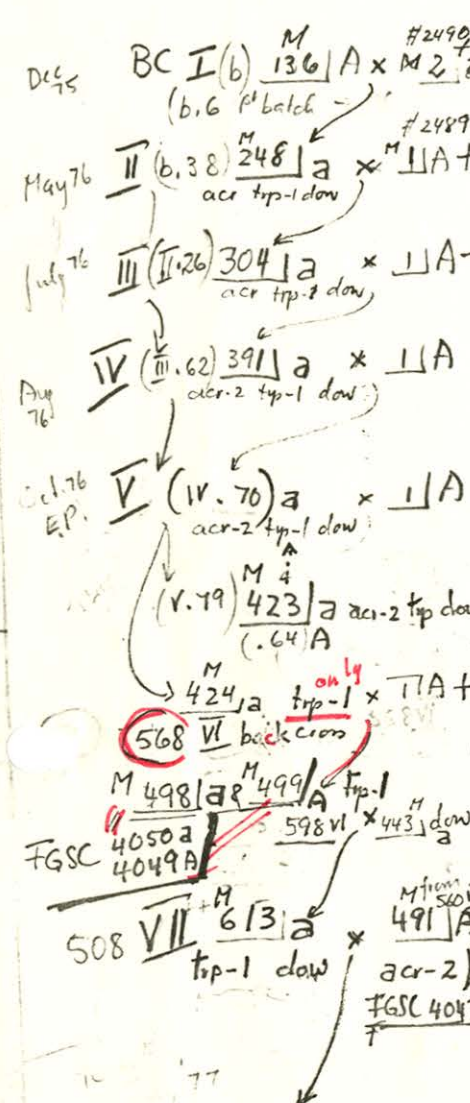 #2490
Dec 75 BC I (b) M 136 A × M 2
(b.6 f' batch -
#2489
May 76 II (b.38) M 248 a × M 1 A +
acr trp-1 dow
July 76 III (II.26) 304 a × 1 A -
acr trp-1 dow
Aug 76 IV (III.62) 391 a × 1 A
acr-2 trp-1 dow
Oct. 76 E.P. V (IV.70) a × 1 A
acr-2 trp-1 dow
A
(V.79) M 423 a acr-2 trp dow
(.64) A
only
M 424 a trp-1 × A +
568 VI backcross
M 498 a & M 499 A trp-1
4050 a 598 VI × 443 M dow
FGSC 4049 A a
508 VII + M 613 a × M from 560 491 A
trp-1 dow acr-2
FGSC 404
77